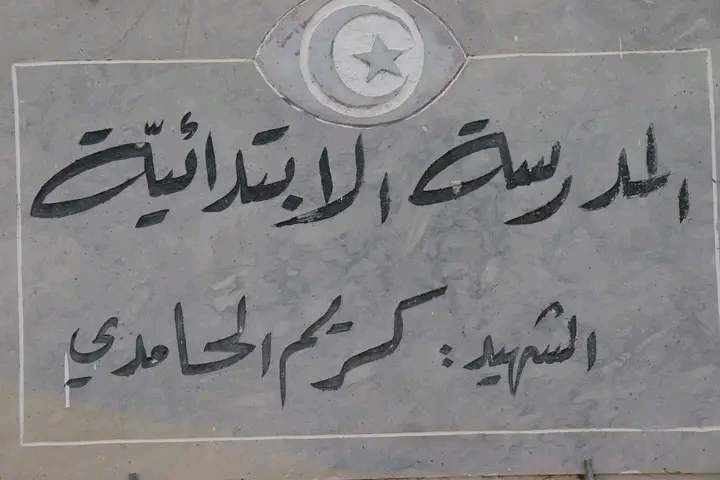 المدرسة الابتدائيّة
الشهيد: كريم الحامدي